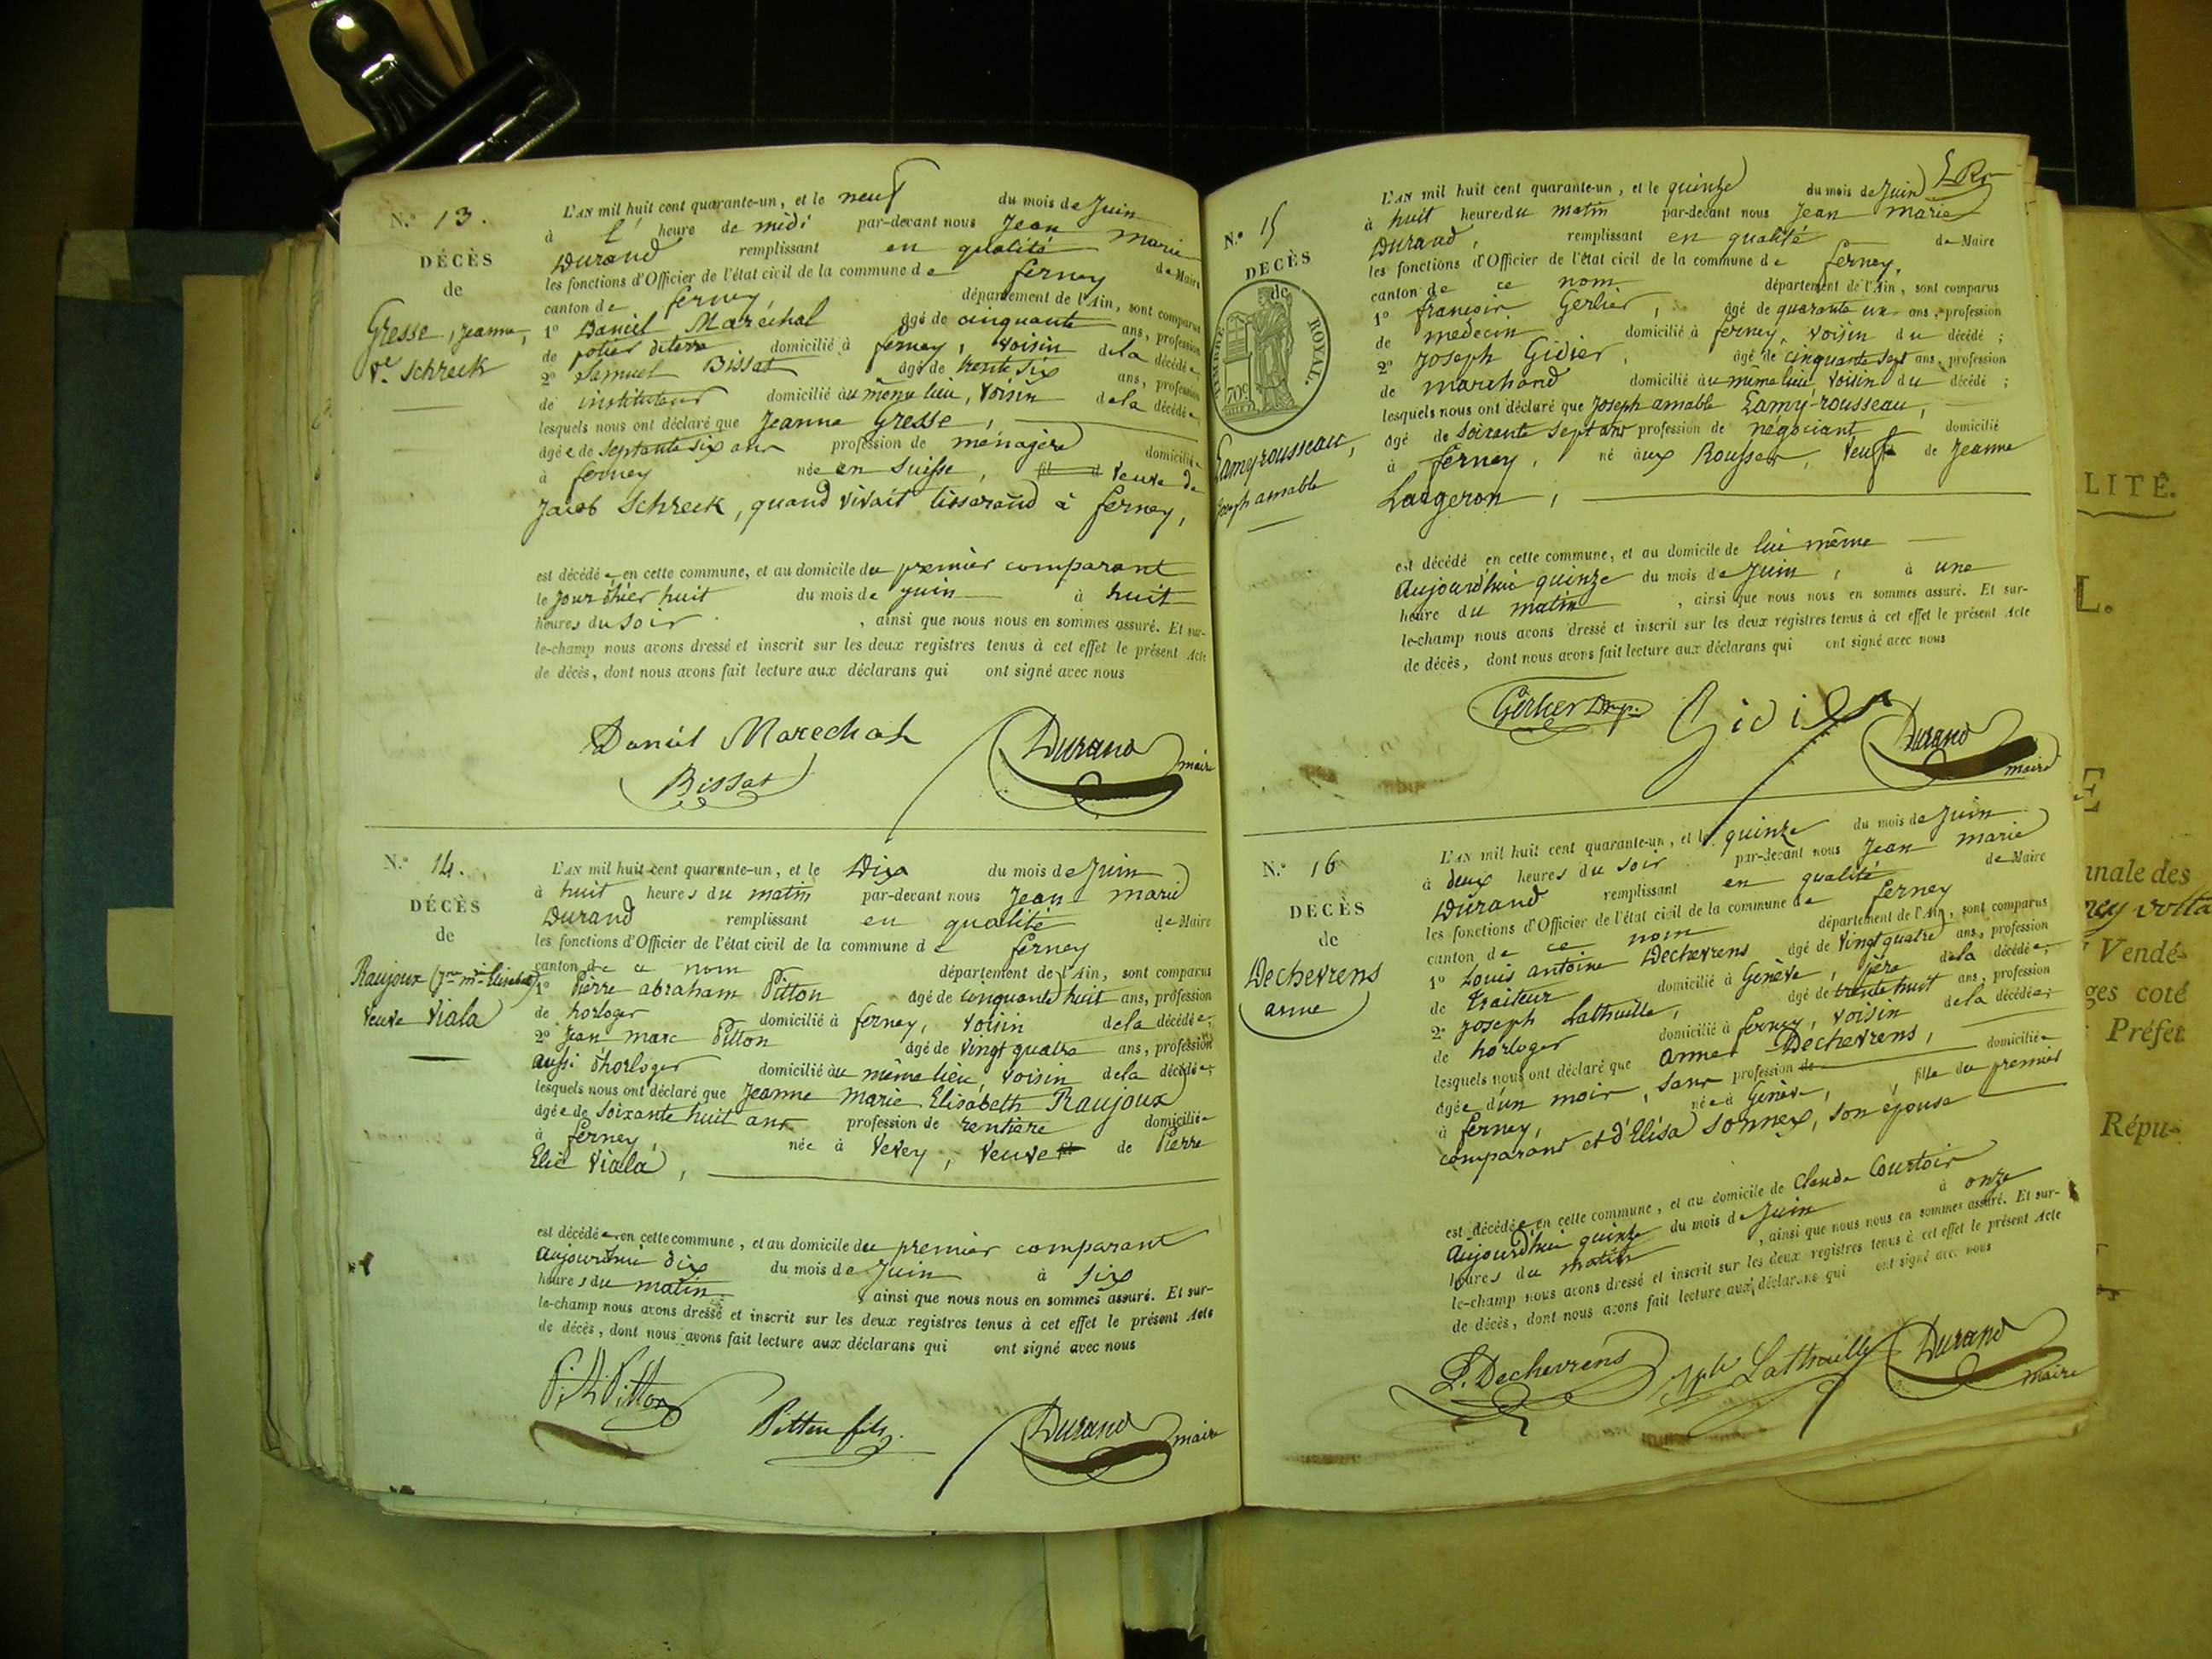 N.° 13.
DÉCÈS
de
Gresse, Jeanne,
V.e Schreck
L'AN mil huit cent quarante-un, et le neuf du mois de Juin
à l' heure de midi par-devant nous Jean marie
Durand remplissant en qualité de Maire
les fonctions d'Officier de l'état civil de la commune de ferney
canton de ferney, département de l'Ain, sont comparus
1° Daniel Marechal âgé de cinquante ans, profession
de potier de terre domicilié à ferney, voisin de la décédée
2° Samuel Bissat âgé de trente six ans, profession
de instituteur domicilié au même lieu, voisin de la décédée
lesquels nous ont déclaré que Jeanne Gresse,
âgée de septante six ans profession de ménagère domiciliée
à ferney née en Suisse, fil d veuve de
Jacob Schreck, quand vivait tisserand à ferney,
est décédée en cette commune, et au domicile du premier comparant
le jour d'hier huit du mois de juin à huit
heures du soir, ainsi que nous nous en sommes assuré. Et sur-
le-champ nous avons dressé et inscrit sur les deux registres tenus à cet effet le présent Acte
de décès, dont nous avons fait lecture aux déclarans qui ont signé avec nous
Daniel Marechal
Bissat
Durand maire
N.° 14.
DÉCÈS
de
Raujoux (J.ne m.ie Elisabeth)
veuve Viala
L'AN mil huit cent quarante-un, et le Dix du mois de Juin
à huit heures du matin par-devant nous Jean marie
Durand remplissant en qualité de Maire
les fonctions d'Officier de l'état civil de la commune de ferney
canton de ce nom département de l'Ain, sont comparus
1° Pierre abraham Pitton âgé de cinquante huit ans, profession
de horloger domicilié à ferney, voisin de la décédée,
2° Jean marc Pitton âgé de vingt quatre ans, profession
aussi d'horloger domicilié au même lieu, voisin de la décédée;
lesquels nous ont déclaré que Jeanne Marie Elisabeth Raujoux
âgée de soixante huit ans profession de rentière domiciliée
à ferney, née à Vevey, veuve fil de Pierre
Elie Viala,
est décédée en cette commune, et au domicile du premier comparant
aujourd'hui dix du mois de Juin à six
heures du matin, ainsi que nous nous en sommes assuré. Et sur-
le-champ nous avons dressé et inscrit sur les deux registres tenus à cet effet le présent Acte
de décès, dont nous avons fait lecture aux déclarans qui ont signé avec nous
Pitton
Pitton fils
Durand maire
N.° 15
DECÈS
de
TIMBRE ROYAL.
70c
Lamy rousseau,
Joseph amable
L'AN mil huit cent quarante-un, et le quinze du mois de Juin
à huit heures du matin par-devant nous Jean marie
Durand, remplissant en qualité de Maire
les fonctions d'Officier de l'état civil de la commune de ferney,
canton de ce nom département de l'Ain, sont comparus
1° françois Gerlier, âgé de quarante un ans, profession
de medecin domicilié à ferney, voisin du décédé;
2° Joseph Gidier, âgé de cinquante sept ans, profession
de marchand domicilié au même lieu, voisin du décédé;
lesquels nous ont déclaré que Joseph amable Lamy-rousseau,
âgé de soixante sept ans profession de négociant domicilié
à ferney, né aux Rousses, veuf de Jeanne
Largeron,
est décédé en cette commune, et au domicile de lui même
aujourd'hui quinze du mois de Juin, à une
heure du matin, ainsi que nous nous en sommes assuré. Et sur-
le-champ nous avons dressé et inscrit sur les deux registres tenus à cet effet le présent Acte
de décès, dont nous avons fait lecture aux déclarans qui ont signé avec nous
Gerlier Gidier Durand maire
N.° 16
DECÈS
de
Dechevrens
anne
L'AN mil huit cent quarante-un, et le quinze du mois de Juin
à deux heures du soir par-devant nous Jean marie
Durand remplissant en qualité de Maire
les fonctions d'Officier de l'état civil de la commune de ferney
canton de ce nom département de l'Ain, sont comparus
1° Louis antoine Dechevrens âgé de vingt quatre ans, profession
de traiteur domicilié à Genève, père de la décédée;
2° Joseph Lathuille, âgé de trente huit ans, profession
de horloger domicilié à ferney, voisin de la décédée;
lesquels nous ont déclaré que anne Dechevrens,
âgée d'un mois, sans profession de domiciliée
à ferney, née à Genève, fille du premier
comparant et d'Elisa Sonnex, son épouse
est décédée en cette commune, et au domicile de Claude Courtois
aujourd'hui quinze du mois de Juin à onze
heures du matin, ainsi que nous nous en sommes assuré. Et sur-
le-champ nous avons dressé et inscrit sur les deux registres tenus à cet effet le présent Acte
de décès, dont nous avons fait lecture aux déclarans qui ont signé avec nous
L. Dechevrens Jph Lathuille Durand maire
LITÉ.
L.
E
nnale des
ney volta
Vendé-
ges coté
Préfet
Répu-